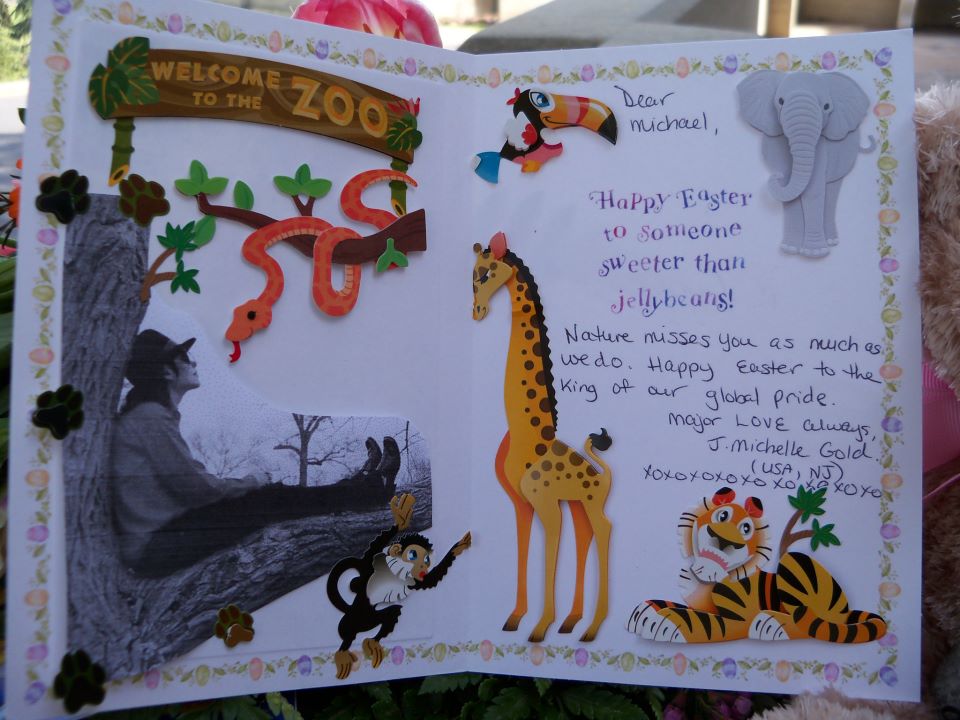 WELCOME
TO THE
ZOO
Dear
michael,
Happy Easter
to someone
sweeter than
jellybeans!
Nature misses you as much as
we do. Happy Easter to the
King of our global pride.
major LOVE always,
J. Michelle Gold.
(USA, NJ)
xoxoxoxoxoxoxoxoxo